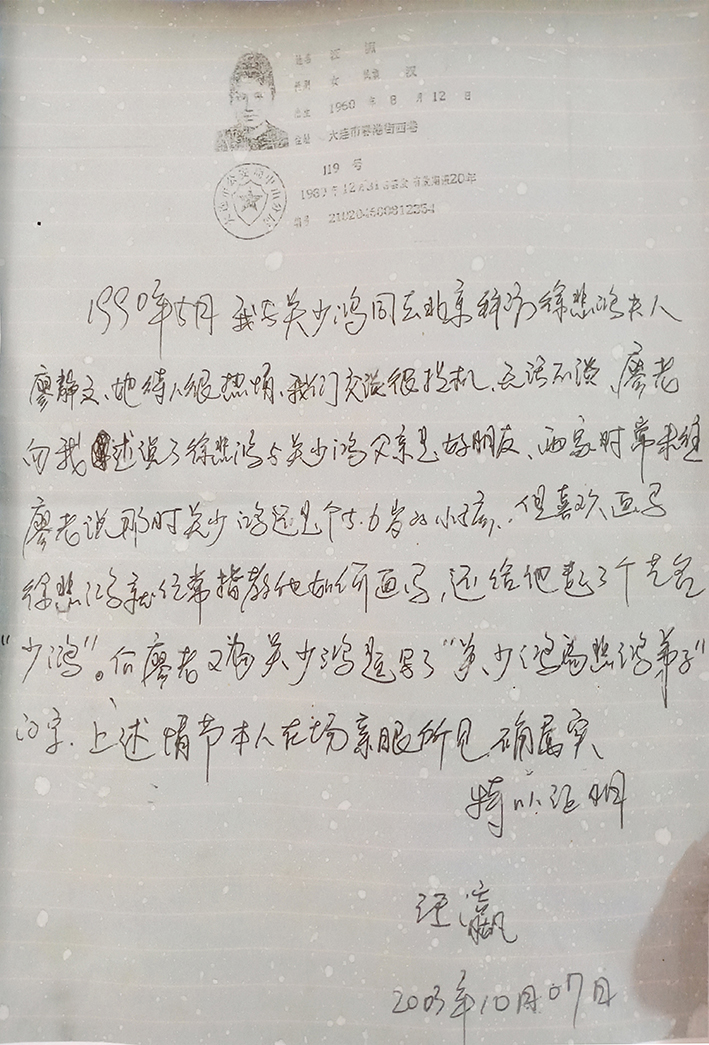 姓名 汪
性别 女 民族 汉
出生 1960 年 8 月 12 日
住址 大连市春港街西巷
119 号
1989年12月31日签发 有效期限20年
编号 210204600812
1990年5月 我与关少鸿同去北京拜访徐悲鸿夫人
廖静文、她待人很热情、我们交谈很投机、无话不谈、廖老
向我述说了徐悲鸿与关少鸿父亲是好朋友、两家时常来往
廖老说那时关少鸿还是个5.6岁的小孩、但喜欢画写
徐悲鸿就经常指教他如何画写，还给他起了个艺名
“少鸿”。今廖老又为关少鸿题写了“关少鸿为悲鸿弟子”
的字. 上述情节本人在场亲眼所见 确属实
特以证明
汪瀛
2003年10月07日